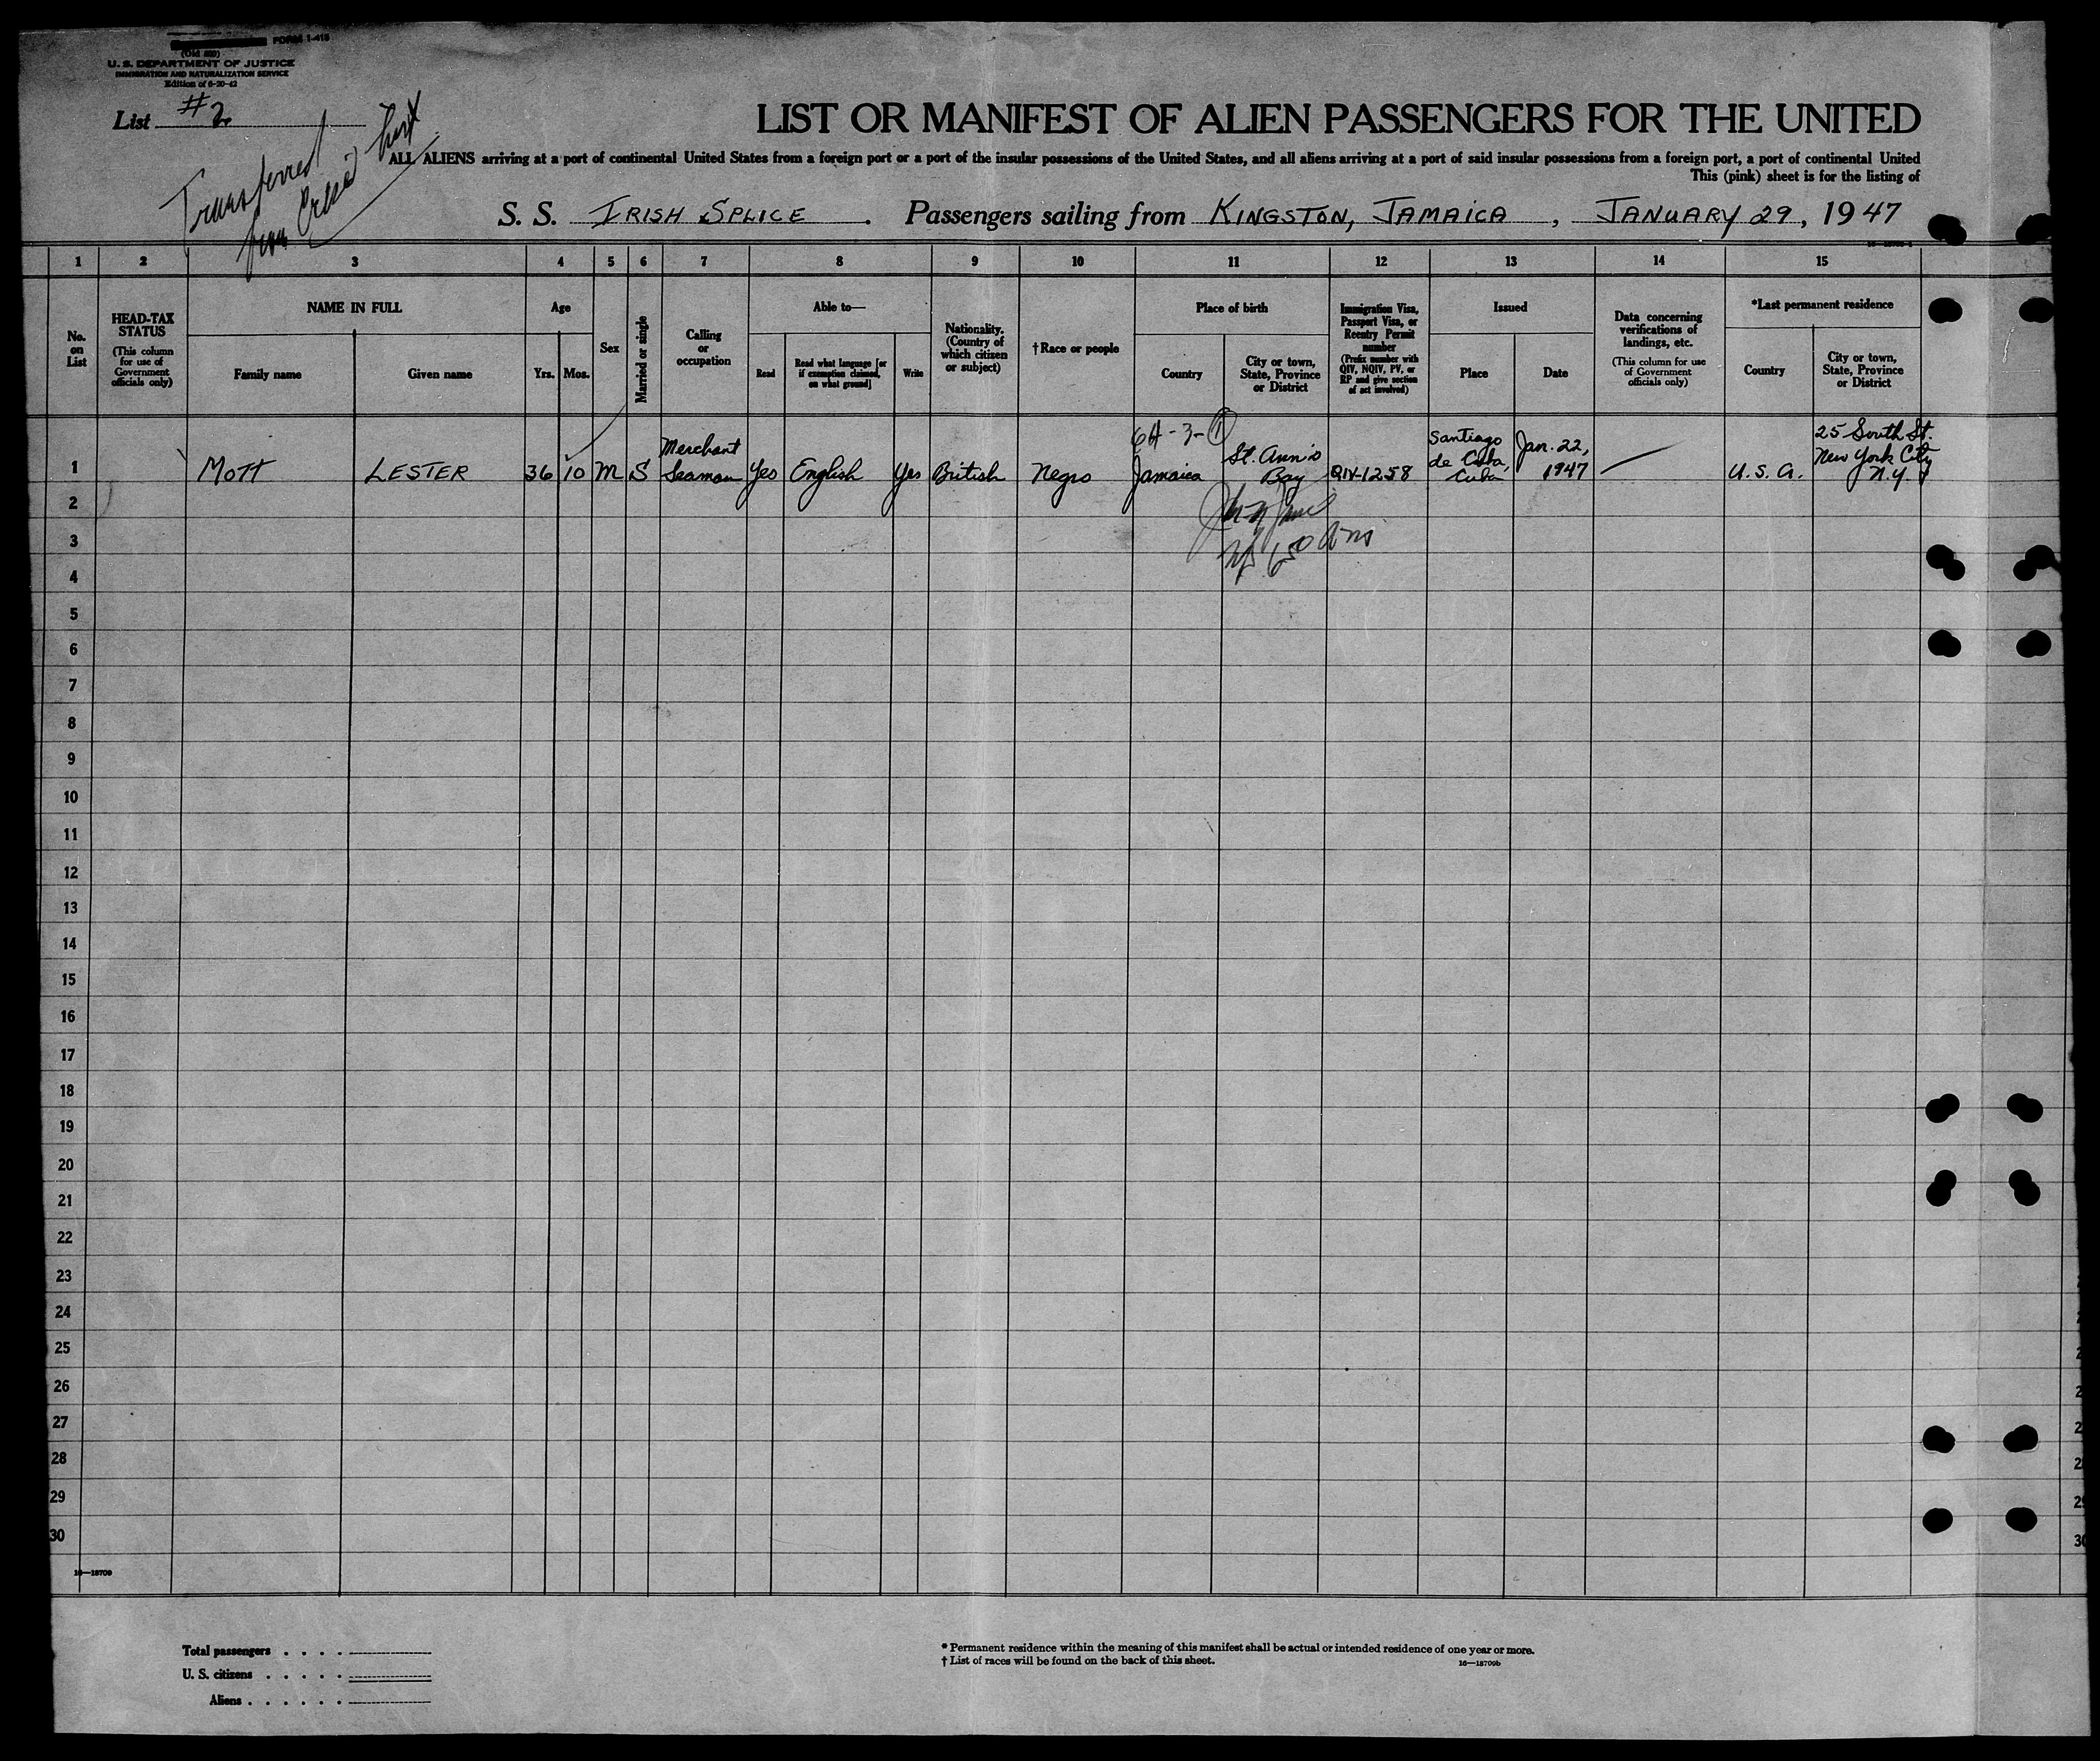 FORM I-415
(Old 500)
U. S. DEPARTMENT OF JUSTICE
IMMIGRATION AND NATURALIZATION SERVICE
Edition of 6-20-42
List #2
Transferred
from list
LIST OR MANIFEST OF ALIEN PASSENGERS FOR THE UNITED
ALL ALIENS arriving at a port of continental United States from a foreign port or a port of the insular possessions of the United States, and all aliens arriving at a port of said insular possessions from a foreign port, a port of continental United
This (pink) sheet is for the listing of
S. S. IRISH SPLICE . Passengers sailing from KINGSTON, JAMAICA , JANUARY 29, 1947
1 2 3 4 5 6 7 8 9 10 11 12 13 14 15
No. on List
HEAD-TAX STATUS
(This column for use of Government officials only)
NAME IN FULL
Family name
Given name
Age
Yrs. Mos.
Sex
Married or single
Calling or occupation
Able to—
Read
Read what language [or if exemption claimed, on what ground]
Write
Nationality. (Country of which citizen or subject)
†Race or people
Place of birth
Country
City or town, State, Province or District
Immigration Visa, Passport Visa, or Reentry Permit number
(Prefix number with QIV, NQIV, PV, or RP and give section of act involved)
Issued
Place
Date
Data concerning verifications of landings, etc.
(This column for use of Government officials only)
*Last permanent residence
Country
City or town, State, Province or District
1 MOTT LESTER 36 10 M S Merchant Seaman Yes English Yes British Negro Jamaica St. Ann's Bay QIV-1258 Santiago de Cuba, Cuba Jan. 22, 1947 — U.S.A. 25 South St. New York City N.Y.
64-3-1
2
3
4
5
6
7
8
9
10
11
12
13
14
15
16
17
18
19
20
21
22
23
24
25
26
27
28
29
30
29
30
16—18709
Total passengers . . . .
U. S. citizens . . . . .
Aliens . . . . . .
* Permanent residence within the meaning of this manifest shall be actual or intended residence of one year or more.
† List of races will be found on the back of this sheet.
16—18709b